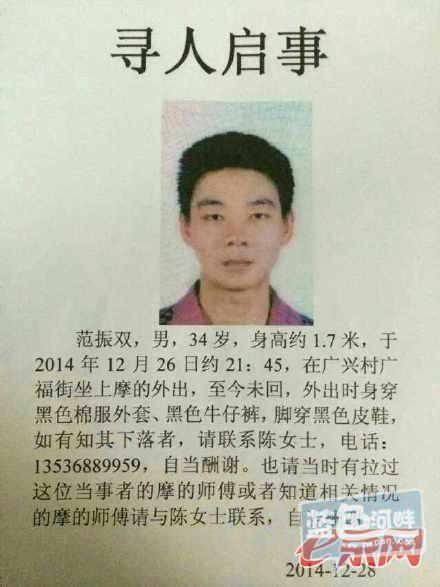 寻人启事
范振双，男，34 岁，身高约 1.7 米，于
2014 年 12 月 26 日约 21：45，在广兴村广
福街坐上摩的外出，至今未回，外出时身穿
黑色棉服外套、黑色牛仔裤，脚穿黑色皮鞋，
如有知其下落者，请联系陈女士，电话：
13536889959，自当酬谢。也请当时有拉过
这位当事者的摩的师傅或者知道相关情况
的摩的师傅请与陈女士联系，自
蓝色河畔
www.hepan.com
e京网
2014-12-28